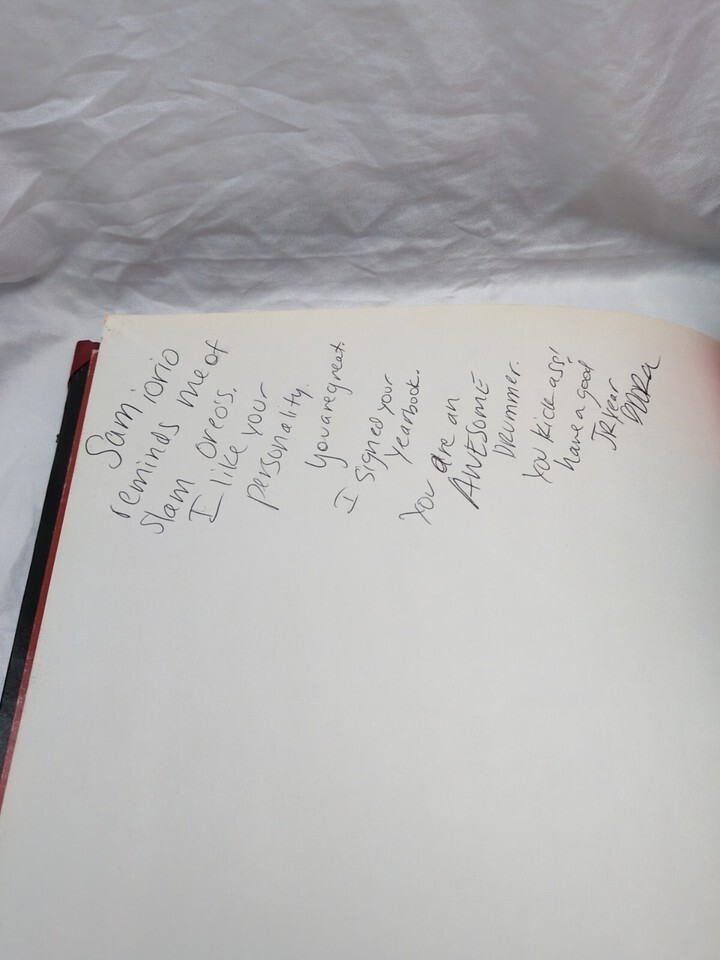 Sam iorio
reminds me of
Slam oreo's.
I like your
personality.
You are great.
I signed your
Yearbook.
You are an
AWESOME
DRUMMER.
You kick ass!
have a good
JR year